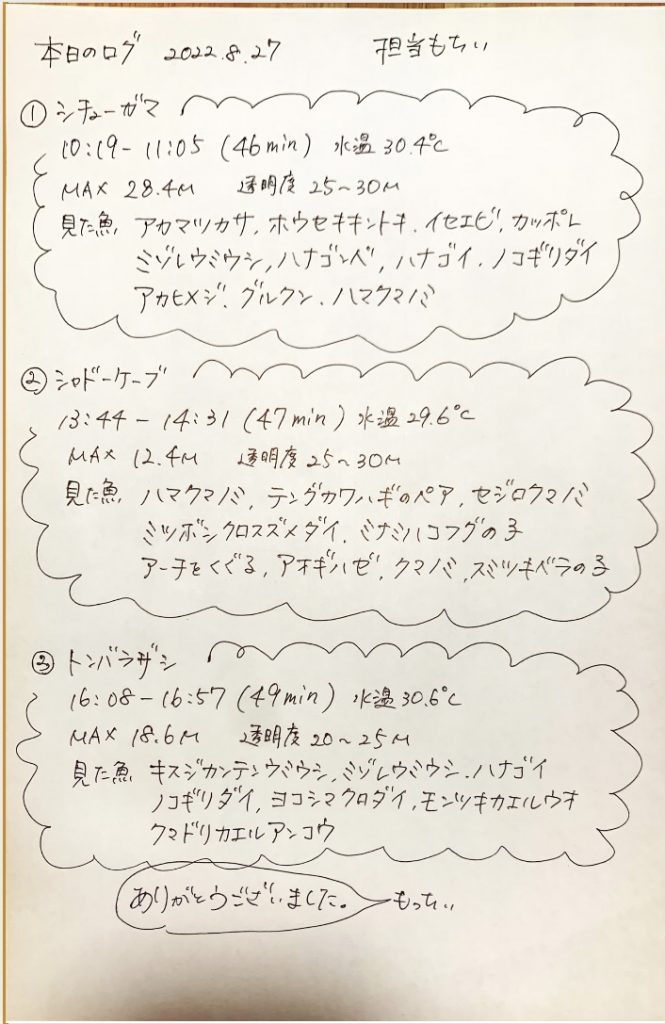 本日のログ 2022.8.27 担当もちい
① シチューガマ
10:19- 11:05 (46min) 水温30.4℃
MAX 28.4M 透明度 25~30M
見た魚 アカマツカサ, ホウセキキントキ. イセエビ, カッポレ
ミゾレウミウシ, ハナゴンベ, ハナゴイ. ノコギリダイ
アカヒメジ. グルクン. ハマクマノミ
② シャドーケーブ
13:44 - 14:31 (47min) 水温29.6℃
MAX 12.4M 透明度25~30M
見た魚 ハマクマノミ, テングカワハギのペア, セジロクマノミ
ミツボシクロスズメダイ, ミナミハコフグの子
アーチをくぐる, アオギハゼ, クマノミ, スミツキベラの子
③ トンバラザシ
16:08-16:57 (49min) 水温30.6℃
MAX 18.6M 透明度 20~25M
見た魚 キスジカンテンウミウシ, ミゾレウミウシ. ハナゴイ
ノコギリダイ, ヨコシマクロダイ, モンツキカエルウオ
クマドリカエルアンコウ
ありがとうございました。 もっちい